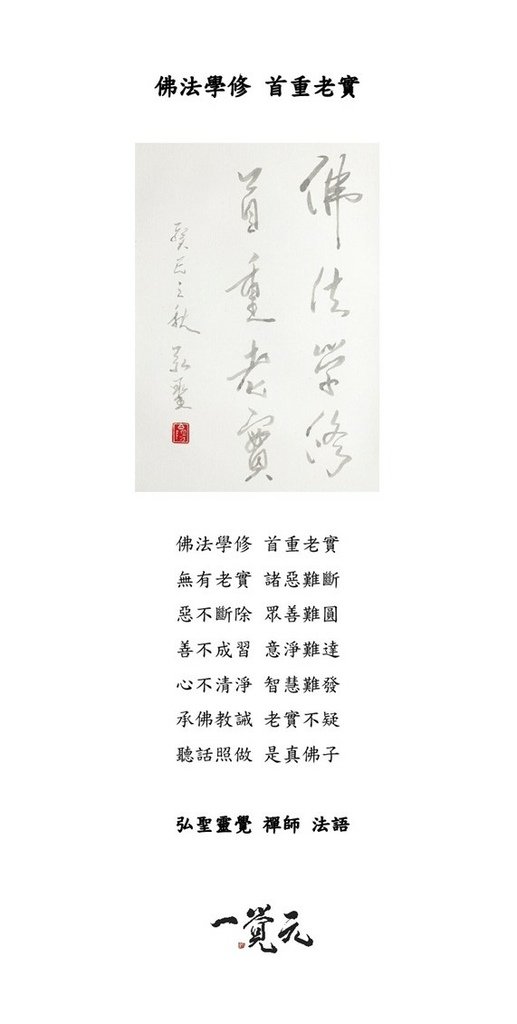 佛法學修 首重老實
佛法学修
首重老實
癸巳之秋 弘聖
佛法學修 首重老實
無有老實 諸惡難斷
惡不斷除 眾善難圓
善不成習 意淨難達
心不清淨 智慧難發
承佛教誡 老實不疑
聽話照做 是真佛子
弘聖靈覺 禪師 法語
一覺元